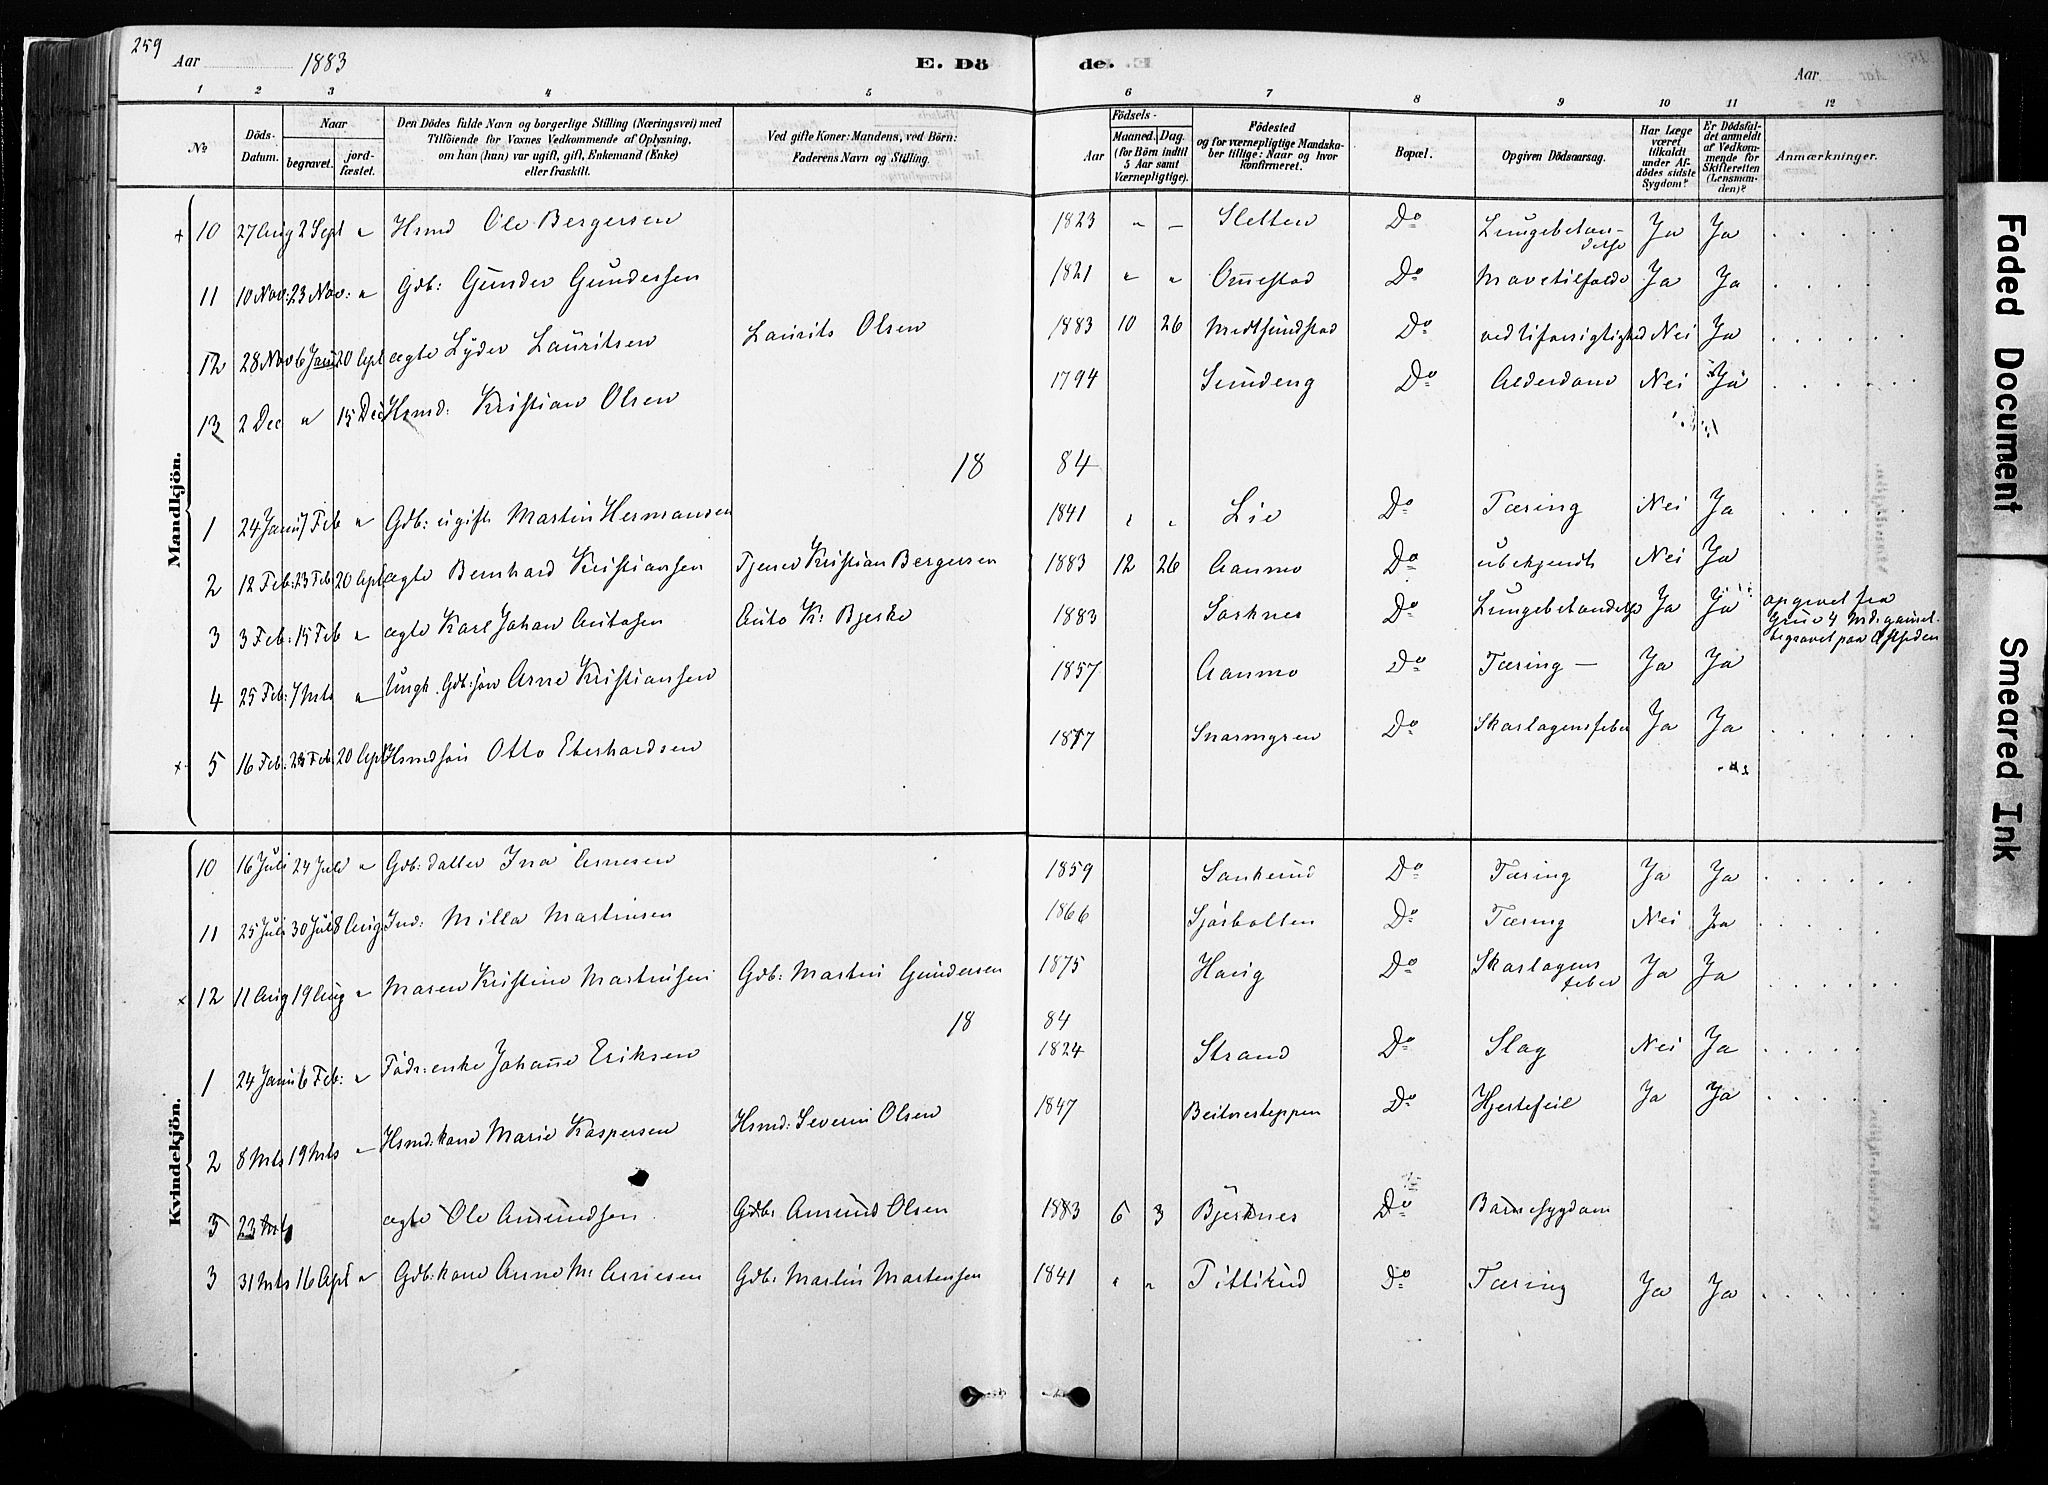 259
Aar 1883 E. Dö de. Aar
1 2 3 4 5 6 7 8 9 10 11 12
No Döds-Datum. Naar begravet. jord-fæstet. Den Dödes fulde Navn og borgerlige Stilling (Næringsvei) med Tilföiende for Voxnes Vedkommende af Oplysning, om han (hun) var ugift, gift, Enkemand (Enke) eller fraskilt. Ved gifte Koner: Mandens, ved Börn: Faderens Navn og Stilling. Födsels- Aar Maaned. Dag. (for Börn indtil 5 Aar samt Værnepligtige). Födested og for værnepligtige Mandskaber tillige: Naar og hvor konfirmeret. Bopæl. Opgiven Dödsaarsag. Har Læge været tilkaldt under Afdödes sidste Sygdom? Er Dödsfaldet anmeldt af Vedkommende for Skifteretten (Lensmanden)? Anmærkninger.
Mandkjön.
+ 10 27 Aug 2 Sept " Hsmd Ole Bergersen 1823 " — Sletten Do Lungebetændelse Ja Ja
11 10 Nov: 23 Nov: " Gdb: Gunder Gundersen 1821 " " Do Mavetilfælde Ja Ja
12 28 Nov 6 Janu 20 Apl ægte Lyder Lauritsen Laurits Olsen 1883 10 26 Do Nei Ja
13 2 Dec " 15 Dec Hsmd: Kristian Olsen 1794 Sundeng Do Alderdom Nei Ja
18 84
1 24 Janu 7 Feb " Gdb: ugift Martin Hermansen 1841 " " Lie Do Tæring Nei Ja
2 12 Feb: 23 Feb: 20 Apl ægte Bernhard Kristiansen Tjener Kristian Bergersen 1883 12 26 Aanmo Do ubekjendt Nei Ja
3 3 Feb: 15 Feb " ægte Karl Johan Autosen Auto K: Bjerke 1883 Sorknes Do Lungebetændelse Ja Ja opgivet fra Grue 4 Mdr gammel begravet paa Østsiden
4 25 Feb: 7 Mts " Ungk. Gdb:søn Arne Kristiansen 1857 Aanmo Do Tæring — Ja Ja
x 5 16 Feb: 23 Feb: 20 Apl Hsmdsøn Otto Eberhardsen 1877 Snarmyren Do Skarlagensfeber Ja Ja
Kvindekjön.
10 16 Juli 24 Juli " Gdb: datter Ina Arnesen 1859 Sankerud Do Tæring Ja Ja
11 25 Juli 30 Juli 8 Aug Ind: Milla Martinsen 1866 Sjørbotten Do Tæring Nei Ja
x 12 11 Aug 19 Aug " Maren Kristine Martinsen Gdb: Martin Gundersen 1875 Haug Do Skarlagens feber Ja Ja
18 84
1 24 Janu 6 Feb: " Fødr: enke Johanne Eriksen 1824 Strand Do Slag Nei Ja
2 8 Mts 19 Mts " Hsmd: kone Marie Kaspersen Hsmd: Severin Olsen 1847 Beitnesteppen Do Hjertefeil Ja Ja
3 23 Mts ægte Ole Amundsen Gdb: Amund Olsen 1883 6 3 Bjerknes Do Barnesygdom
3 31 Mts 16 Apl " Gdb: kone Anne M: Arnesen Gdb: Martin Martensen 1841 " " Tittirud Do Tæring Ja Ja
Faded Document
Smeared Ink